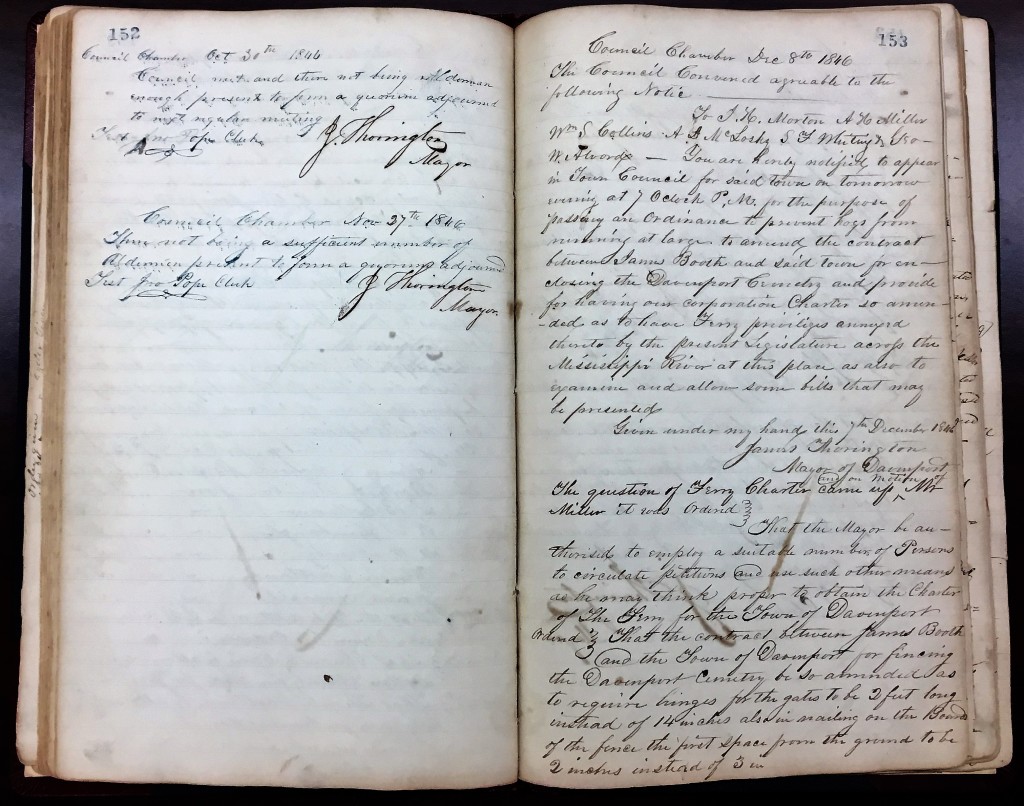 152
Council Chamber Oct 30th 1846
Council met and there not being Alderman
enough present to form a quorum adjourned
to next regular meeting
Jno Pope Clerk
J. Thorington
Mayor
Council Chamber Nov 27th 1846
There not being a sufficient number of
Aldermen present to form a quorum adjourned
Test Jno Pope Clerk
J Thorington
Mayor
153
Council Chamber Dec 8th 1846
The Council Convened agreable to the
following Notic
To J. H. Morton A H Miller
Wm S Collins A F McLosky S F Whitney & Geo
W. Alvord — You are hereby notified to appear
in Town Council for said town on tomorrow
evening at 7 Oclock P, M, for the purpose of
passing an Ordinance to prevent hogs from
running at large to amend the contract
between James Booth and said town for en-
closing the Davenport Cemetry and provide
for having our corporation Charter so amen-
-ded as to have Ferry priviliges annexed
thereto by the present Legislature across the
Mississippi River at this place as also to
examine and allow some bills that may
be presented
Given under my hand this 7th December 1846
James Thorington
Mayor of Davenport
and on motion of
The question of Ferry Charter came up Mr
Miller it was Ordered
That the Mayor be au-
thorised to employ a suitable number of Persons
to circulate petitions and use such other means
as he may think proper to obtain the Charter
of The Ferry for the Town of Davenport
Ordered That the contract between James Booth
and the Town of Davenport for fincing
the Davenport Cemetry be so amended as
to require hinges for the gates to be 2 feet long
instead of 14 inches also in nailing on the Boards
of the fence the first space from the ground to be
2 inches instead of 3 in